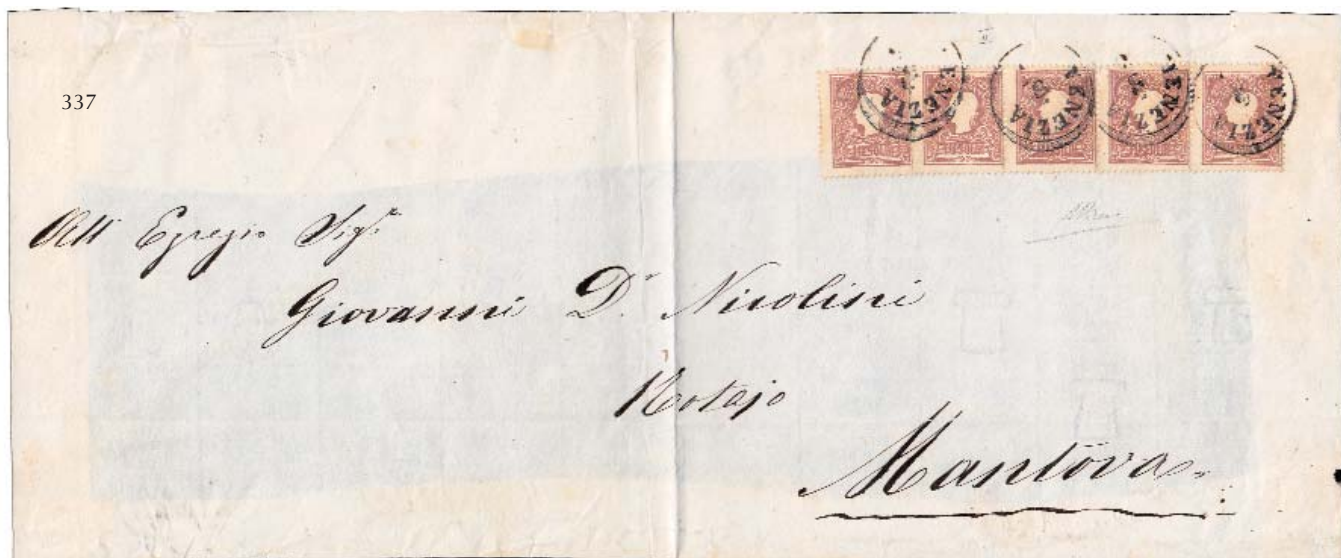 337
VENEZIA
VENEZIA
VENEZIA
VENEZIA
VENEZIA
All Egregio Sigr
Giovanni Dr. Nicolini
Notajo
Mantova